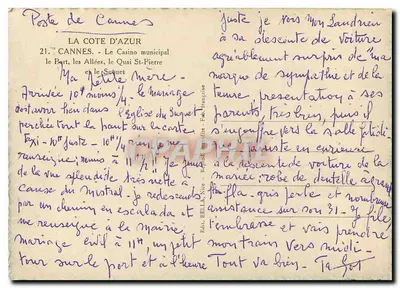 Poste de Cannes
LA COTE D'AZUR
21. - CANNES. - Le Casino municipal
le Port, les Allées, le Quai St-Pierre
et le Suquet
Ma petite mère -
Arrivée 10h moins 1/4. le mariage
doit avoir lieu dans l'Eglise du Suquet
perchée tout là haut sur la carte
Taxi - 10h juste - 10h 1/4
renseigne; mms à 11h 1/4. Je jouis
de la vue splendide très nette à
cause du mistral. je redescends
par un chemin en escalada et
me renseigne à la mairie,
mariage civil à 11h, un petit
tour sur le port et à l'heure
juste je vois mon Landrieu
à sa descente de voiture
agréablement surpris de ma
marque de sympathie et de la
tienne, présentation à ses
parents, très bien, puis il
s'engouffre vers la salle
juste en curieuse
à la descente de voiture de la
mariée; robe de dentelle à grand
fla-fla. gris perle et nombreuse
assistance sur son 31. - Je file,
t'embrasse et vais prendre
mon tram vers midi -
Tout va bien.